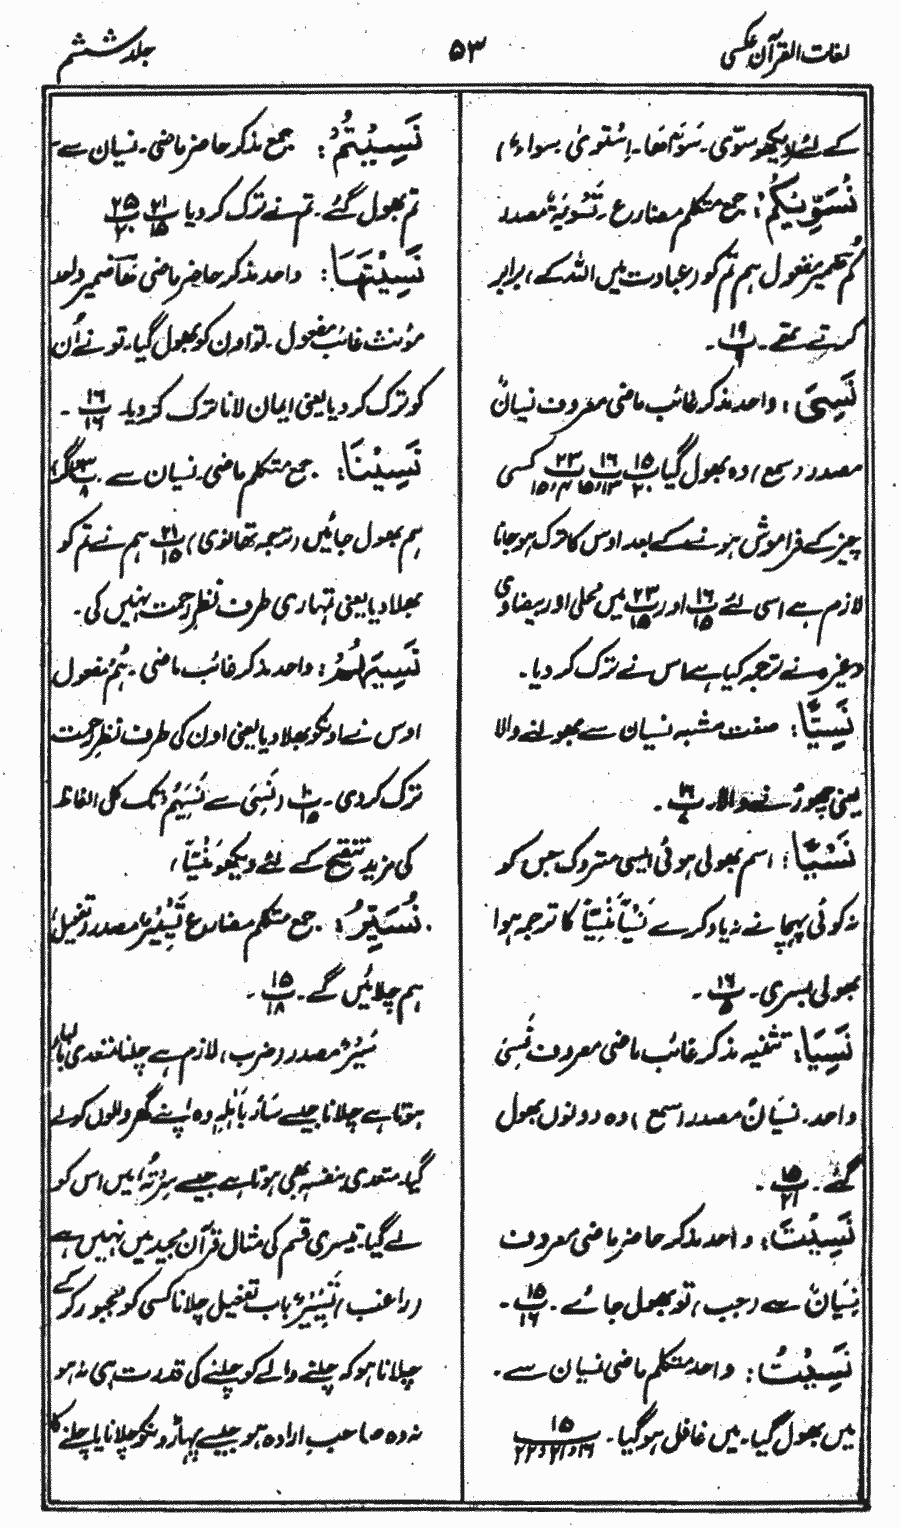 لغات القرآن عکسی
۵۳
جلد ششم
کے لئے دیکھو سَوّٰی۔ سَوّٰىهَا۔ اِسْتَوٰی بسواء)
نُسَوِّیْکُمْ: جمع متکلم مضارع۔ تَسْوِیَۃٌ مصدر
کُمْ ضمیر مفعول ہم تم کو (عبادت میں اللہ کے) برابر
کرتے تھے۔ ۱۹/۹۔
نَسِیَ: واحد مذکر غائب ماضی معروف نسیانٌ
مصدر (سمع) وہ بھول گیا ۱۵/۲۰ ۱۶/۱۳،۱۵ ۲۳/۱۵،۷ کسی
چیز کے فراموش ہونے کے بعد اوس کا ترک ہو جانا
لازم ہے اسی لئے ۱۶/۱۵ اور ۲۳/۱۵ میں محلی اور بیضاوی
وغیرہ نے ترجمہ کیا ہے اس نے ترک کر دیا۔
نَسِیًّا: صفت مشبہ نسیان سے بھولنے والا
یعنی چھوڑنے والا۔ ۱۶/۸۔
نَسْیًا: اسم بھولی ہوئی ایسی متروک جس کو
نہ کوئی پہچانے نہ یاد کرے نَسْیًا مَّنْسِیًّا کا ترجمہ ہوا
بھولی بسری۔ ۱۶/۵۔
نَسِیَا: تثنیہ مذکر غائب ماضی معروف نَسِیَ
واحد۔ نسیانٌ مصدر (سمع) وہ دونوں بھول
گئے۔ ۱۵/۲۱۔
نَسِیْتَ: واحد مذکر حاضر ماضی معروف
نِسْیَانٌ سے (جب) تو بھول جائے۔ ۱۵/۱۶۔
نَسِیْتُ: واحد متکلم ماضی نسیان سے۔
میں بھول گیا۔ میں غافل ہو گیا۔ ۱۵/۱۶،۲۱،۲۲
نَسِیْتُمْ: جمع مذکر حاضر ماضی۔ نسیان سے
تم بھول گئے۔ تم نے ترک کر دیا ۲۱/۱۵ ۲۵/۲۰
نَسِیْتَهَا: واحد مذکر حاضر ماضی هَا ضمیر واحد
مؤنث غائب مفعول۔ تو اون کو بھول گیا۔ تو نے اُن
کو ترک کر دیا یعنی ایمان لانا ترک کر دیا۔ ۱۶/۱۶۔
نَسِیْنَا: جمع متکلم ماضی۔ نسیان سے۔ ۳/۸ اگر
ہم بھول جائیں (ترجمہ تھانوی) ۲۱/۱۵ ہم نے تم کو
بھلا دیا یعنی تمہاری طرف نظر رحمت نہیں کی۔
نَسِیَهُمْ: واحد مذکر غائب ماضی۔ هُمْ مفعول
اوس نے اونکو بھلا دیا یعنی اون کی طرف نظر رحمت
ترک کر دی۔ ۱۰/۱۵ (نَسِیَ سے نَسِیَهُمْ تک کل الفاظ
کی مزید تنقیح کے لئے دیکھو مَنْسِیًّا)
نُسَیِّرُ: جمع متکلم مضارع تَسْیِیْرٌ مصدر (تفعیل)
ہم چلائیں گے۔ ۱۵/۱۸۔
سَیْرٌ مصدر (ضرب) لازم ہے چلنا متعدی بالباء
ہوتا ہے چلانا جیسے سَارَ بِاَهْلِهٖ وہ اپنے گھر والوں کو لے
گیا۔ متعدی بنفسہ بھی ہوتا ہے جیسے سِرْتُهٗ میں اس کو
لے گیا۔ تیسری قسم کی مثال قرآن مجید میں نہیں ہے
(راغب) تَسْیِیْرٌ باب تفعیل چلانا کسی کو مجبور کر کے
چلانا ہو کہ چلنے والے کو چلنے کی قدرت ہی نہ ہو
نہ وہ صاحب ارادہ ہو جیسے پہاڑوں کو چلانا یا چلنے کا